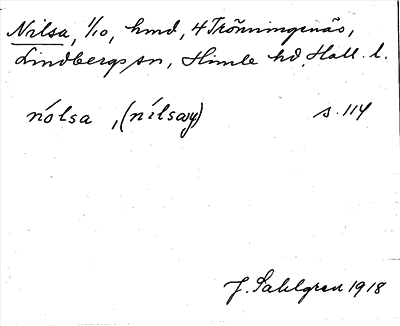 Nilsa, 1/10, hmd, 4 Trönningenäs,
Lindbergs sn, Himle hd, Hall. l.
nólsa , (nílsay) s. 114
J. Sahlgren 1918